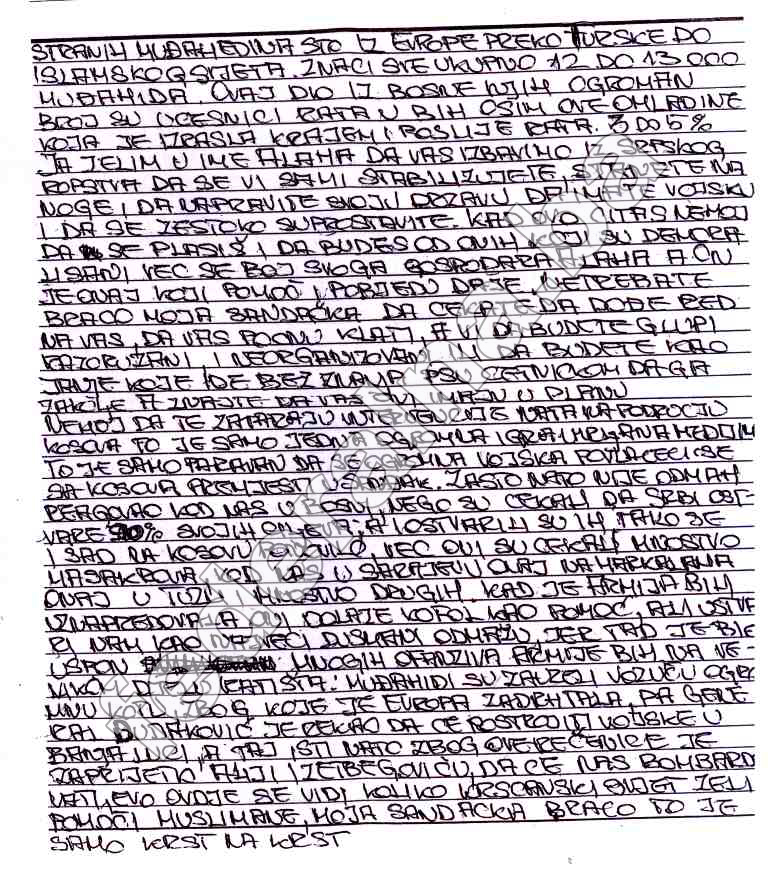 STRANIH MUDAHEDINA STO IZ EVROPE PREKO TURSKE DO
ISLAMSKOG SVJETA. ZNACI STE UKUPNO 12 DO 13000
MUDAHIDA. OVAJ DIO IZ BOSNE NJIH OGROMAN
BROJ SU UCESNICI RATA U BIH OSIM OVE OMLADINE
KOJA JE IZRASLA KRAJEM I POSLIJE RATA. 3 DO 5%
JA JELIM U IME ALAHA DA VAS IZBAVIMO IZ SRPSKOG
ROPSTVA DA SE VI SAMI STABILIZUJETE, STANETE NA
NOGE I DA NAPRAVITE SVOJU DRZAVU DA IMATE VOJSKU
I DA SE ZESTOKO SUPROSTAVITE. KAD OVO CITAS NEMOJ
DA SE PLASIŠ I DA BUDES OD ONIH KOJI SU DEMORA
LISANI VEC SE BOJ SVOGA GOSPODARA ALAHA A ON
JE ONAJ KOJI POMOĆ I POBJEDU DAJE, NETREBATE
BRACO MOJA SANDAČKA DA CEKATE DA DOĐE RED
NA VAS, DA VAS POCNU KLATI, A VI DA BUDETE GLUPI
RAZORUŽANI I NEORGANIZOVANI ILI DA BUDETE KAO
JANJE KOJE IDE BEZ ZNANJA PSU CETNICKOM DA GA
ZAKOLJE A ZNAJTE DA VAS ONI IMAJU U PLANU
NEMOJ DA TE ZATARAJU INTERVENCIJE NATA NA PODROCJU
KOSOVA TO JE SAMO JEDNA OGROMNA IGRA MEDIJIM
TO JE SAMO PARAVAN DA SE OGROMNA VOJSKA POVLACECI SE
SA KOSOVA PREMJESTI U SANDJAK. ZASTO NATO NIJE ODMAH
REAGOVAO KOD NAS U BOSNI, NEGO SU CEKALI DA SRBI OST-
VARE 90% SVOJIH CILJEVA, A I OSTVARILI SU IH, TAKO JE
I SAD NA KOSOVU PONOVLJENO, VEC OVI SU CEKALI MNOSTVO
MASAKROVA KOD NAS U SARAJEVU ONAJ NA MARKALAMA
ONAJ U TUZLI I MNOSTVO DRUGIH. KAD JE ARMIJA BIH
UZNAPREDOVALA ONI DOLAZE KOFOL KAO POMOĆ, ALI USTVA
RI NAM KAO NAJVECI DUSMANI ODMAŽU, JER TAD JE BIE
USPON MNOGIH OFANZIVA ARMIJE BIH NA VE-
LIKOM DJELU RATIŠTA. MUDAHIDI SU ZAUZELI VOZUĆU OGRO
MNU KOTU ZBOG KOJE JE EVROPA ZADRHTALA, DA GENE
RAL DUDAKOVIĆ JE REKAO DA CE POSTROJITI VOJSKE U
BANJA LUCI, A TAJ ISTI NATO ZBOG OVE REČENICE JE
ZAPRIJETIO ALIJI IZETBEGOVIĆU, DA ĆE NAS BOMBARD
VATI, EVO OVDJE SE VIDI KOLIKO KRSCANSKI SVIJET ZELI
POMOĆI MUSLIMANE, MOJA SANDACKA BRACO TO JE
SAMO KRST NA KRST